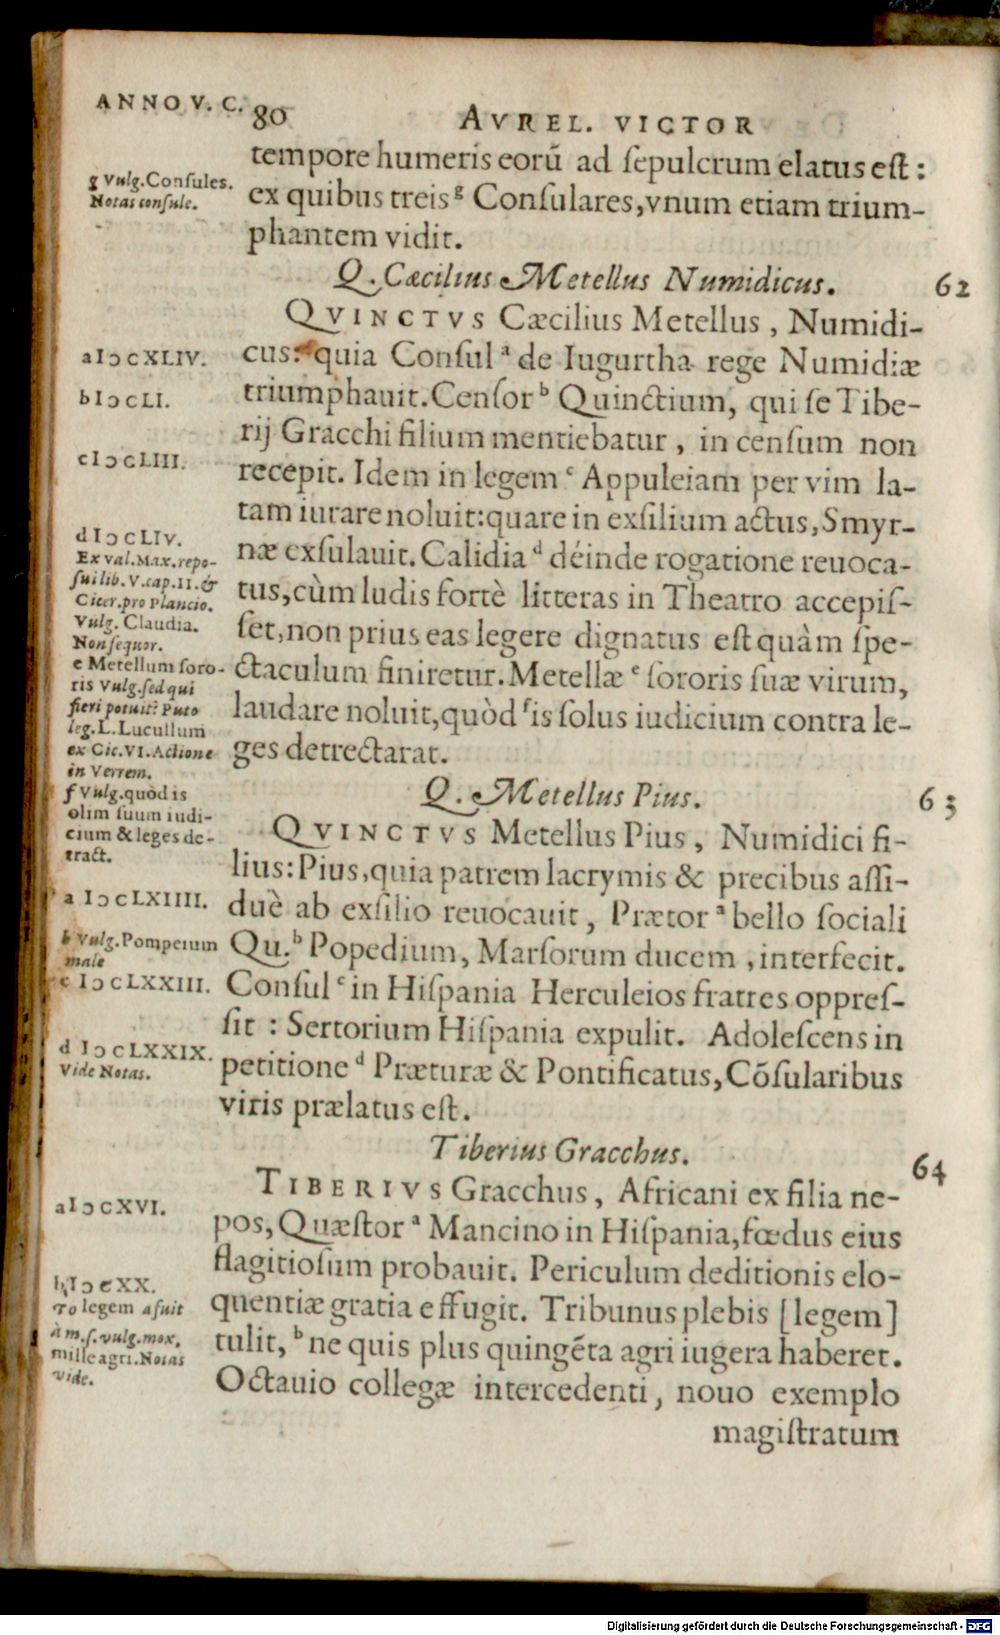 ANNO V. C.
80 AVREL. VICTOR
tempore humeris eorũ ad ſepulcrum elatus eſt :
ex quibus treis g Conſulares, vnum etiam trium-
phantem vidit.
g Vulg. Conſules.
Notas conſule.
Q. Cæcilius Metellus Numidicus. 62
QVINCTVS Cæcilius Metellus, Numidi-
cus: quia Conſul a de Iugurtha rege Numidiæ
triumphauit. Cenſor b Quinctium, qui ſe Tibe-
rij Gracchi filium mentiebatur, in cenſum non
recepit. Idem in legem c Appuleiam per vim la-
tam iurare noluit: quare in exſilium actus, Smyr-
næ exſulauit. Calidia d déinde rogatione reuoca-
tus, cùm ludis fortè litteras in Theatro accepiſ-
ſet, non prius eas legere dignatus eſt quàm ſpe-
ctaculum finiretur. Metellæ e ſororis ſuæ virum,
laudare noluit, quòd f is ſolus iudicium contra le-
ges detrectarat.
a IↃCXLIV.
b IↃCLI.
c IↃCLIII.
d IↃCLIV.
Ex Val. Max. repo-
ſui lib. V. cap. 11. &
Cicer. pro Plancio.
Vulg. Claudia.
Non ſequor.
e Metellum ſoro-
ris Vulg. ſed qui
fieri potuit? Puto
leg. L. Lucullum
ex Cic. VI. Actione
in Verrem.
f Vulg. quòd is
olim ſuum iudi-
cium & leges de-
tract.
Q. Metellus Pius. 63
QVINCTVS Metellus Pius, Numidici fi-
lius: Pius, quia patrem lacrymis & precibus aſſi-
duè ab exſilio reuocauit, Prætor a bello ſociali
Qu. b Popedium, Marſorum ducem, interfecit.
Conſul c in Hiſpania Herculeios fratres oppreſ-
ſit : Sertorium Hiſpania expulit. Adoleſcens in
petitione d Præturæ & Pontificatus, Cõſularibus
viris prælatus eſt.
a IↃCLXIIII.
b Vulg. Pompeium
male
c IↃCLXXIII.
d IↃCLXXIX.
Vide Notas.
Tiberius Gracchus. 64
TIBERIVS Gracchus, Africani ex filia ne-
pos, Quæſtor a Mancino in Hiſpania, fœdus eius
flagitioſum probauit. Periculum deditionis elo-
quentiæ gratia effugit. Tribunus plebis [legem]
tulit, b ne quis plus quingẽta agri iugera haberet.
Octauio collegæ intercedenti, nouo exemplo
magiſtratum
a IↃCXVI.
b IↃCXX.
To legem afuit
à m.ſ. vulg. mox,
mille agri. Notas
vide.
Digitalisierung gefördert durch die Deutsche Forschungsgemeinschaft - DFG